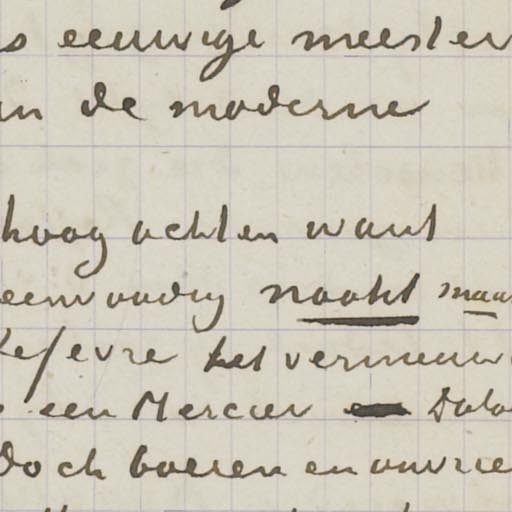 s eeuwige meester
in de moderne
hoog achten want
eenvoudig naakt maar
Lefevre het vernieuw
een Mercier Dalo
doch boeren en ouvrie